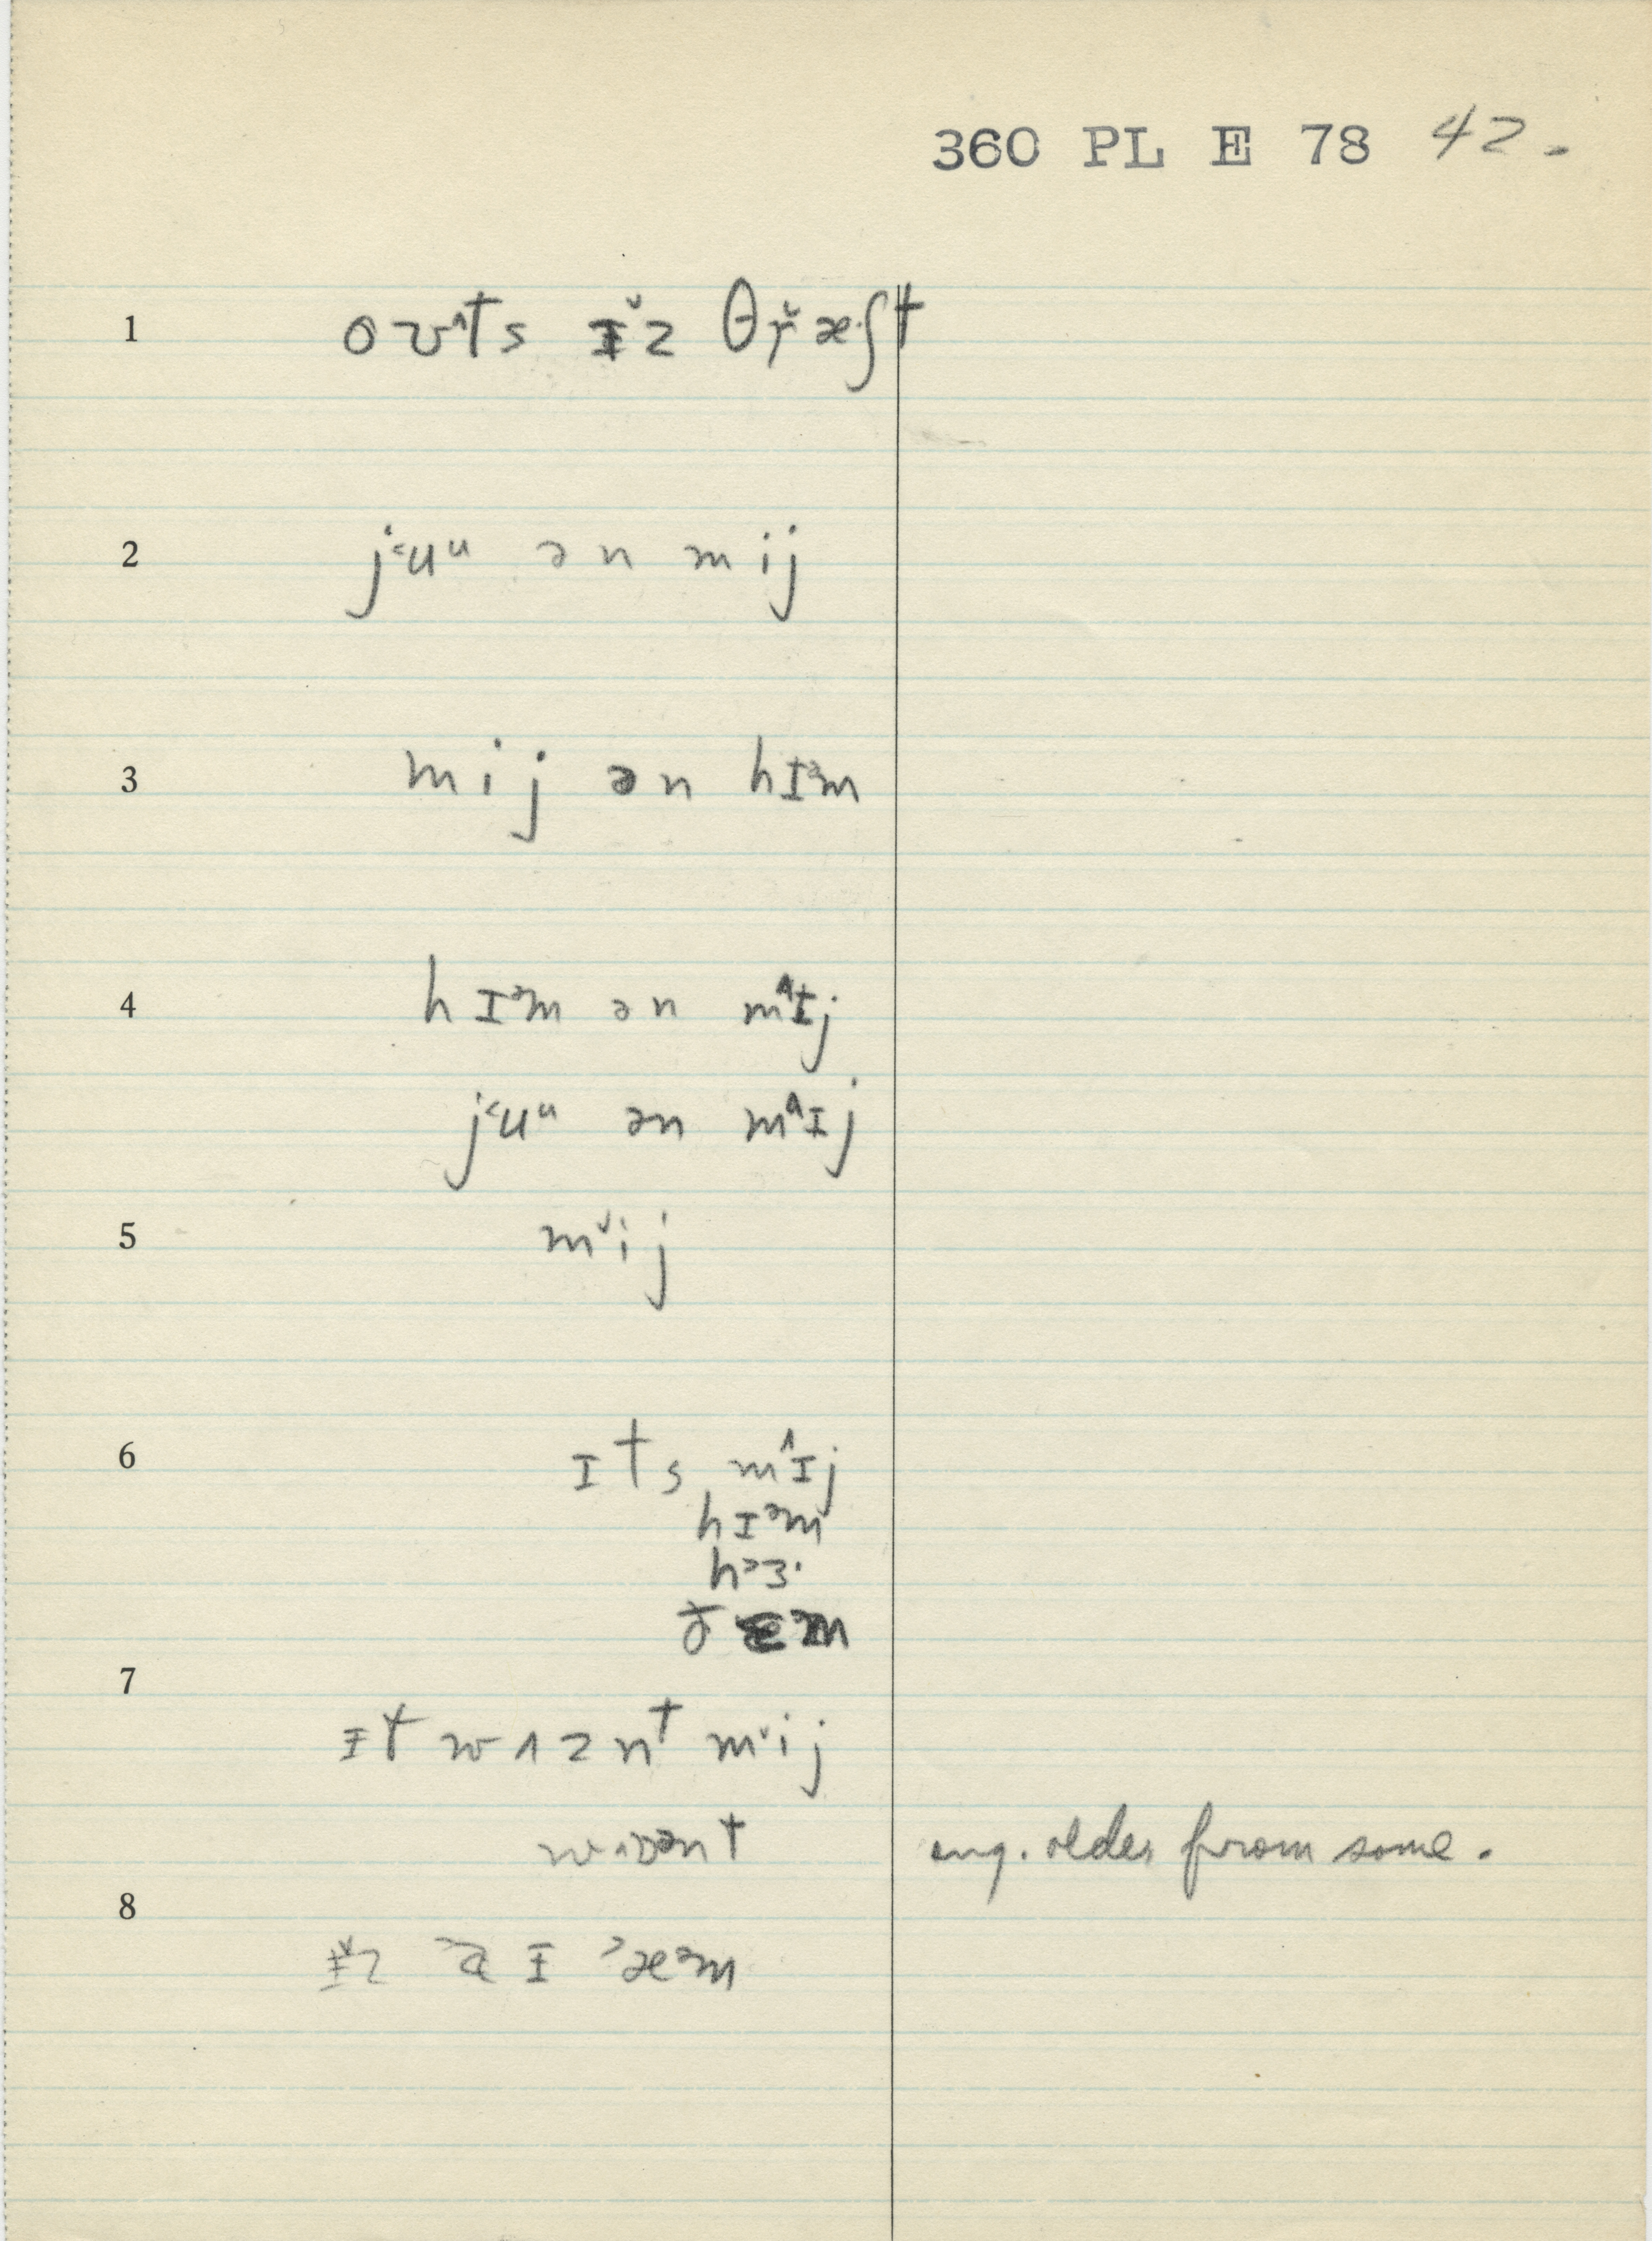 360 PL E 78 42.
1 oʊ^ts ɪ̆z θr̥̆æ·ʃt
2 j˂uᵘ ən mij
3 mij ən hɪᵊm
4 hɪᵊm ən m^ɪj
j˂uᵘ ən m^ɪj
5 m˅ij
6 ɪts m^ɪj
hɪᵊm
h˃ɜ·
ðɛᵊm
7 ɪt wʌznt m˅ij
eng. older from some.
8 ɪ̆z ˃a ɪ ˃æᵊm